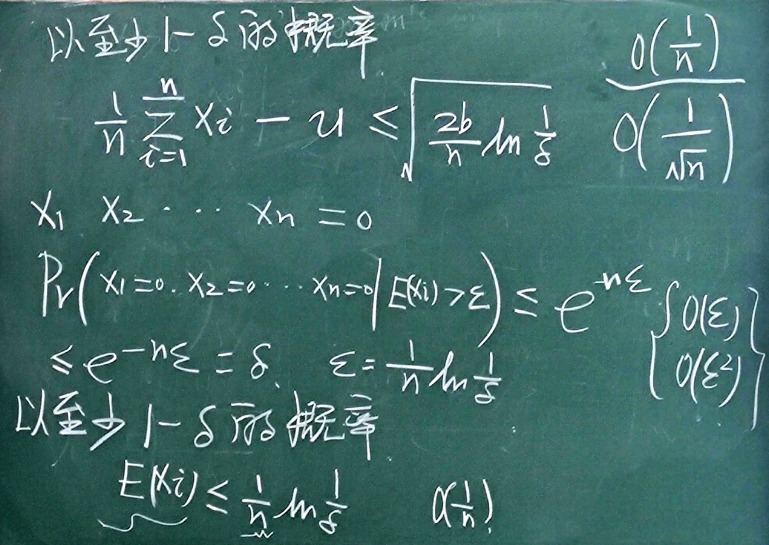 以至少1-δ的概率
O(1/n)
1/n ∑_{i=1}^{n} Xi - u ≤ √(2b/n ln 1/δ)
O(1/√n)
X1 X2 ··· Xn = 0
Pr(X1=0. X2=0 ··· Xn=0 | E(Xi) > ε) ≤ e^{-nε} { O(ε)
O(ε²) }
≤ e^{-nε} = δ. ε = 1/n ln 1/δ
以至少1-δ的概率
E(Xi) ≤ 1/n ln 1/δ O(1/n)